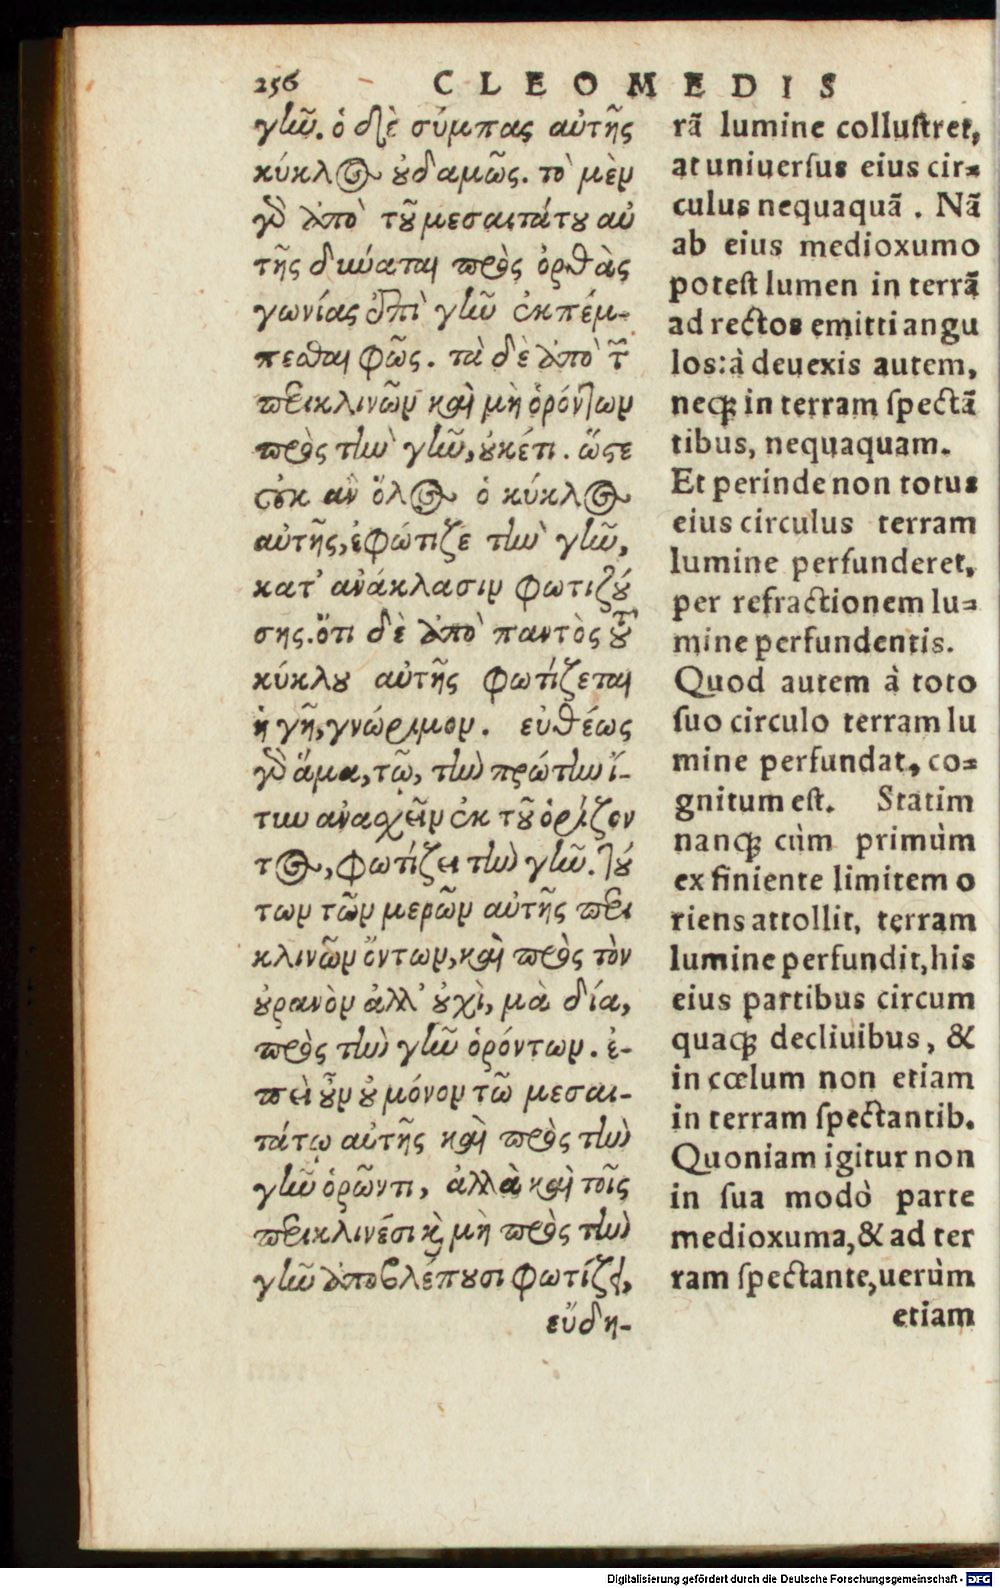 256 CLEOMEDIS
γῆν. ὁ δὲ σύμπας αὐτῆς
κύκλος οὐδαμῶς. τὸ μὲν
γὰρ ἀπὸ τοῦ μεσαιτάτου αὐ
τῆς δύναται πρὸς ὀρθὰς
γωνίας ἐπὶ γῆν ἐκπέμ-
πεσθαι φῶς. τὰ δὲ ἀπὸ τῶν
περικλινῶν καὶ μὴ ὁρόντων
πρὸς τὴν γῆν, οὐκέτι. ὥστε
οὐκ αν ὅλος ὁ κύκλος
αὐτῆς, ἐφώτιζε τὴν γῆν,
κατ' ανάκλασιν φωτιζού
σης. ὅτι δὲ ἀπὸ παντὸς τοῦ
κύκλου αὐτῆς φωτίζεται
ἡ γῆ, γνώριμον. εὐθέως
γὰρ ἅμα, τῶ, τὴν πρώτην ἴ-
τυν ανασχεῖν ἐκ τοῦ ὁρίζον
τος, φωτίζει τὴν γῆν. τού
των τῶν μερῶν αὐτῆς περι
κλινῶν ὄντων, καὶ πρὸς τὸν
οὐρανὸν ἀλλ' οὐχὶ, μὰ δία,
πρὸς τὴν γῆν ὁρόντων. ἐ-
πεὶ οὖν οὐ μόνον τῶ μεσαι-
τάτῳ αὐτῆς καὶ πρὸς τὴν
γῆν ὁρῶντι, ἀλλὰ καὶ τοῖς
περικλινέσι καὶ μὴ πρὸς τὴν
γῆν ἀποβλέπουσι φωτίζει,
εὔδη-
rã lumine colluſtret,
at uniuerſus eius cir=
culus nequaquã. Nã
ab eius medioxumo
poteſt lumen in terrã
ad rectos emitti angu
los: à deuexis autem,
neq; in terram ſpectã
tibus, nequaquam.
Et perinde non totus
eius circulus terram
lumine perfunderet,
per refractionem lu=
mine perfundentis.
Quod autem à toto
ſuo circulo terram lu
mine perfundat, co=
gnitum eſt. Statim
nanq; cùm primùm
ex finiente limitem o
riens attollit, terram
lumine perfundit, his
eius partibus circum
quaq; decliuibus, &
in cœlum non etiam
in terram ſpectantib.
Quoniam igitur non
in ſua modò parte
medioxuma, & ad ter
ram ſpectante, uerùm
etiam
Digitalisierung gefördert durch die Deutsche Forschungsgemeinschaft - DFG